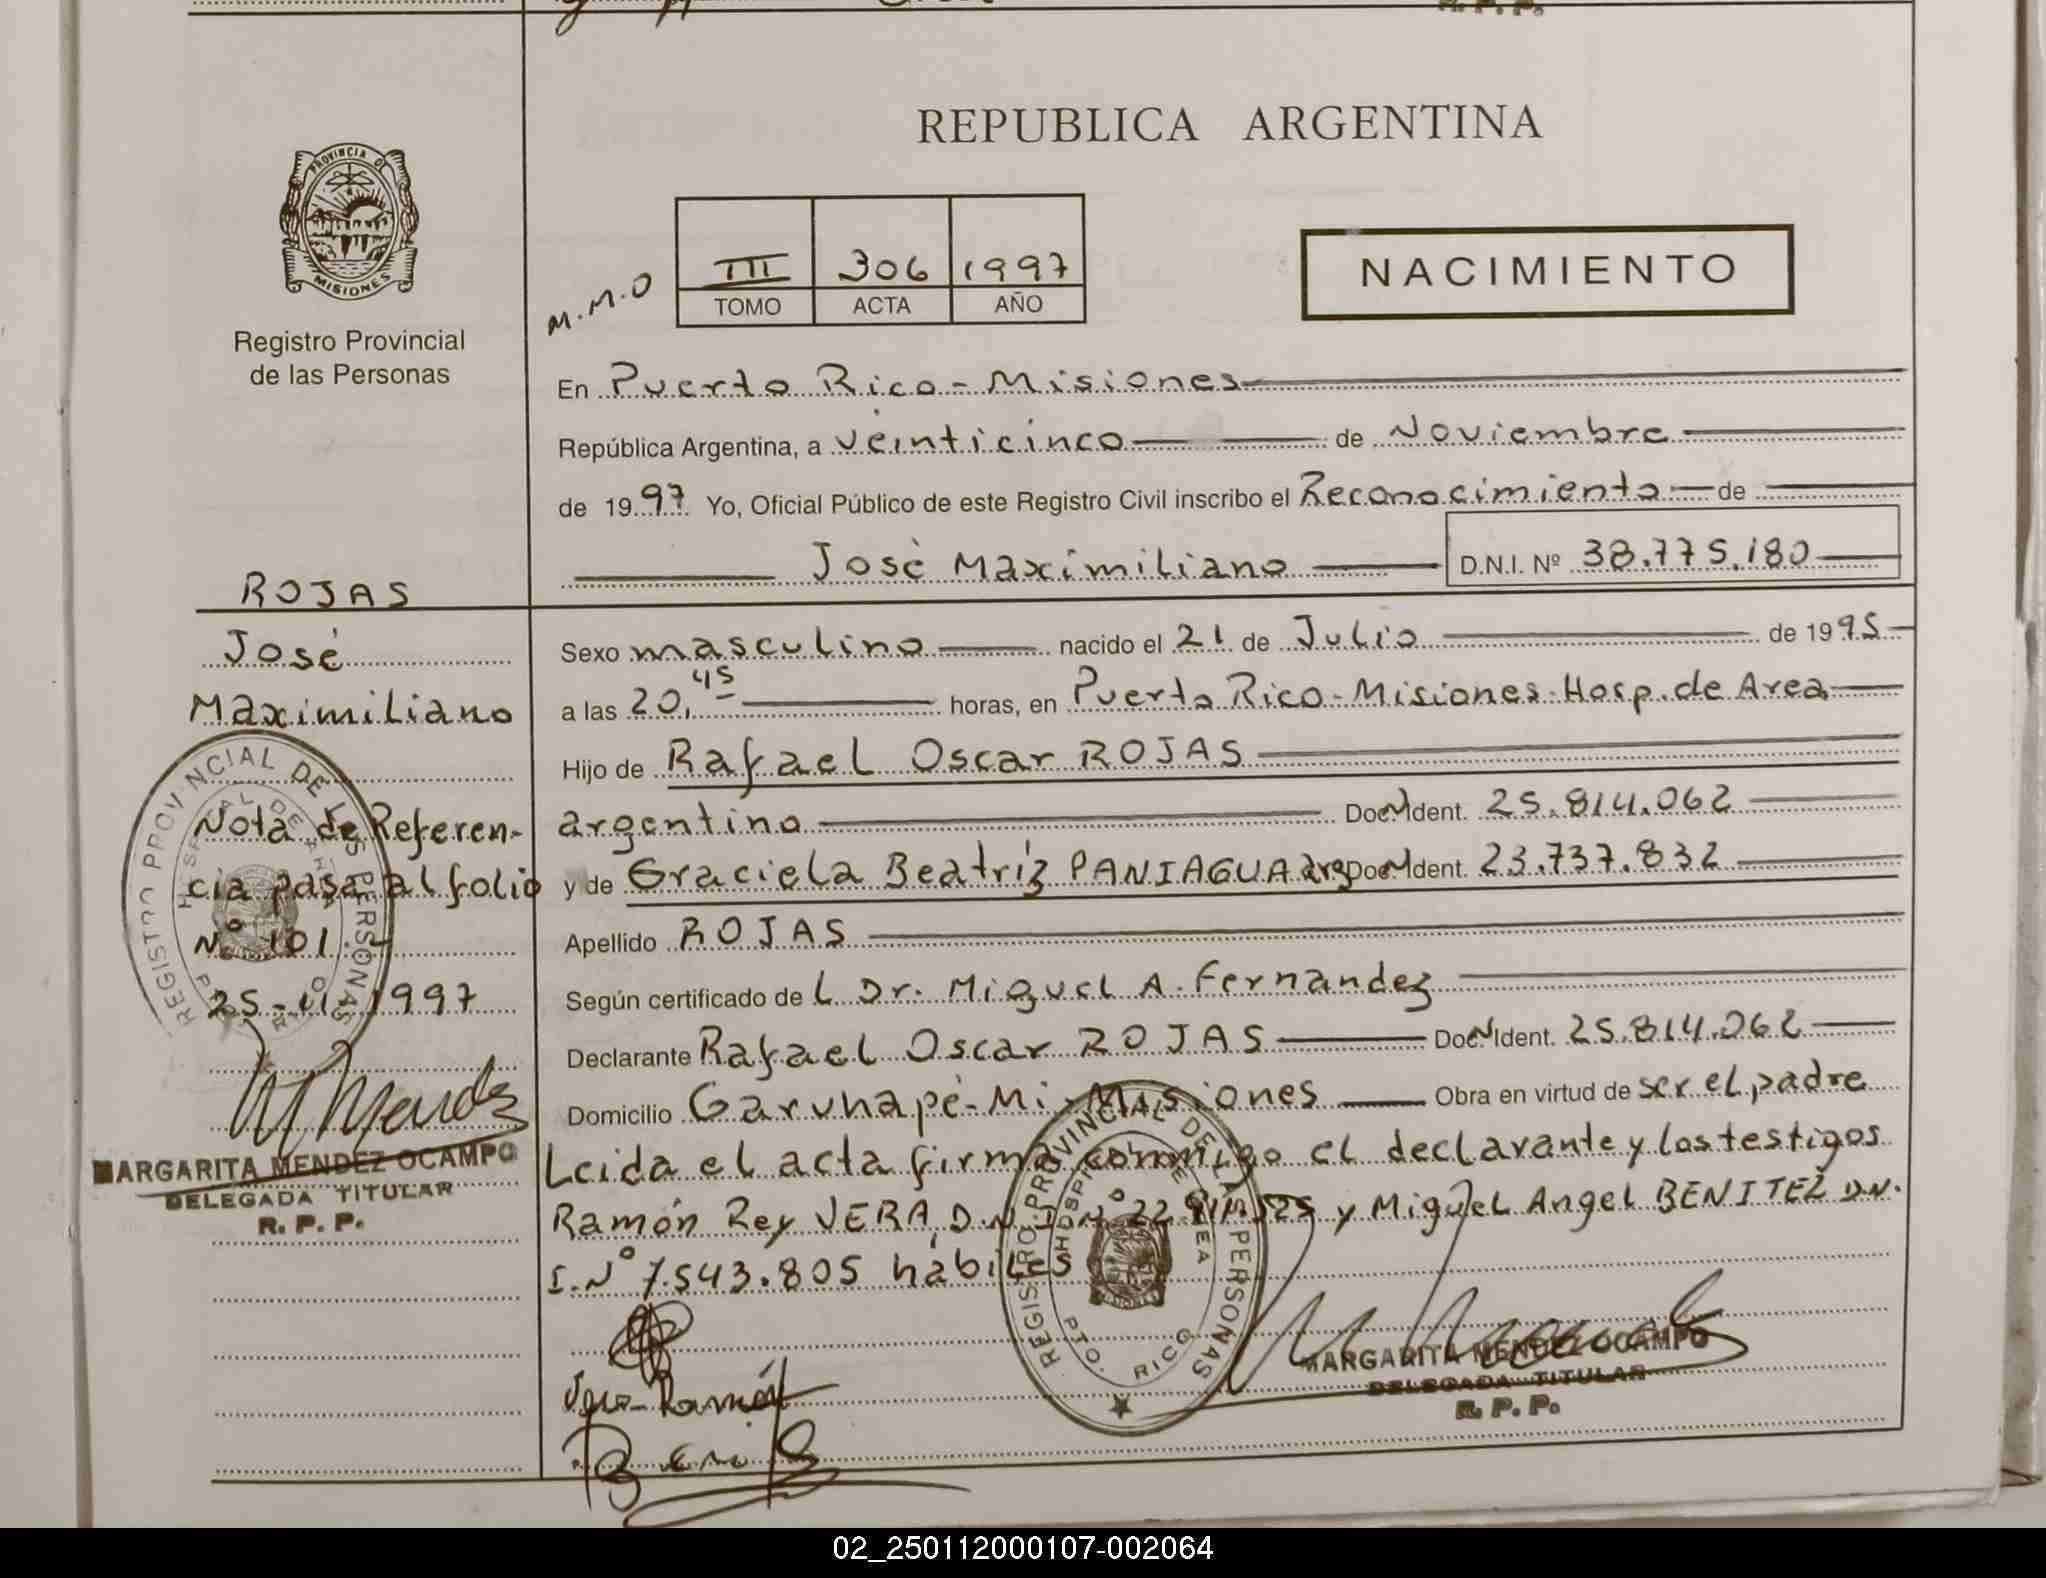 REPUBLICA ARGENTINA
PROVINCIA DE
MISIONES
Registro Provincial
de las Personas
M.M.O
III 306 1997
TOMO ACTA AÑO
NACIMIENTO
En Puerto Rico - Misiones
República Argentina, a veinticinco de Noviembre
de 1997 Yo, Oficial Público de este Registro Civil inscribo el Reconocimiento de
José Maximiliano D.N.I. Nº 38.775.180
ROJAS
José
Maximiliano
Nota de Referen-
cia pasa al folio
Nº 101.-
25-11-1997
MARGARITA MENDEZ OCAMPO
DELEGADA TITULAR
R. P. P.
Sexo masculino nacido el 21 de Julio de 1995
a las 20,45 horas, en Puerto Rico - Misiones - Hosp. de Area
Hijo de Rafael Oscar ROJAS
argentino Doc N Ident. 25.814.062
y de Graciela Beatríz PANIAGUA arg Doc N Ident. 23.737.832
Apellido ROJAS
Según certificado de l Dr. Miguel A. Fernandez
Declarante Rafael Oscar ROJAS Doc N Ident. 25.814.062
Domicilio Garuhapé - Mi - Misiones Obra en virtud de ser el padre
Leida el acta firma conmigo el declarante y los testigos
Ramón Rey VERA, D.N.I. Nº 22. y Miguel Angel BENITEZ D.N.
I. Nº 7.543.805 hábiles
Vera Ramón
MARGARITA MENDEZ OCAMPO
DELEGADA TITULAR
R. P. P.
REGISTRO PROVINCIAL DE LAS PERSONAS
HOSPITAL DE AREA
PTO. RICO
REGISTRO PROVINCIAL DE LAS PERSONAS
HOSPITAL DE AREA
PTO. RICO
02_250112000107-002064